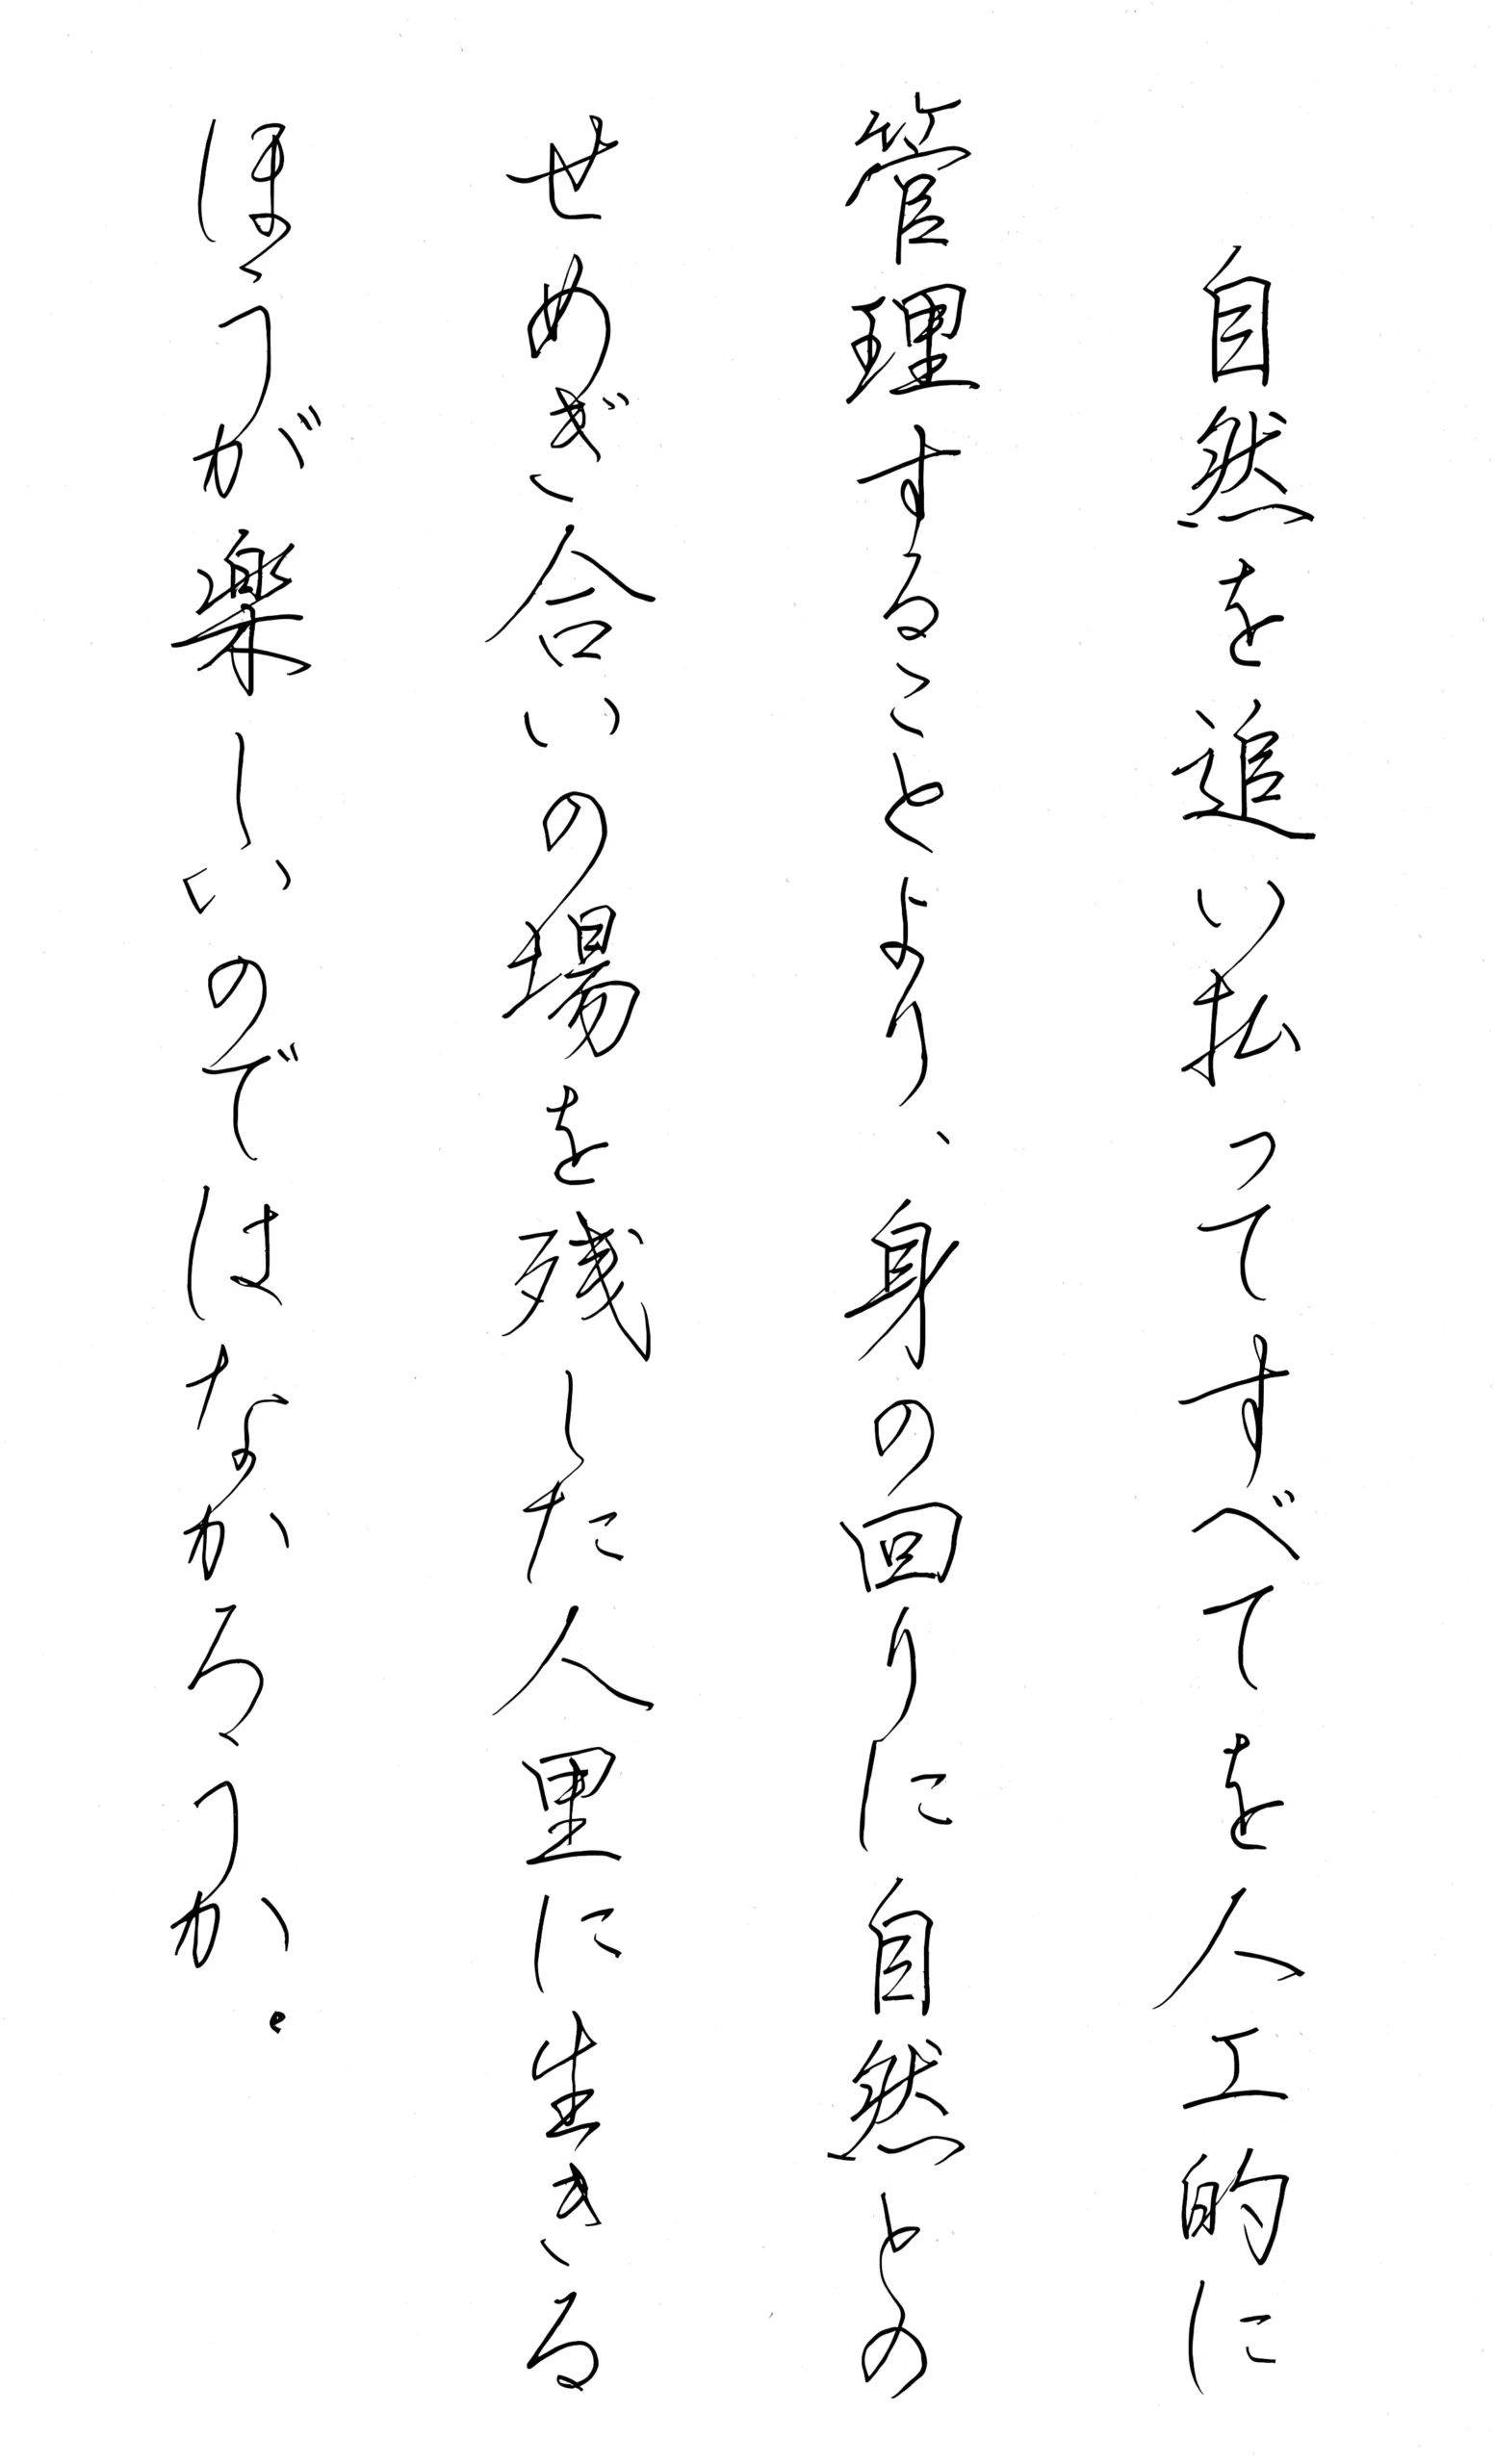 自然を追い払ってすべてを人工的に
管理することより、身の回りに自然との
せめぎ合いの場を残した人里に生きる
ほうが楽しいのではなかろうか。